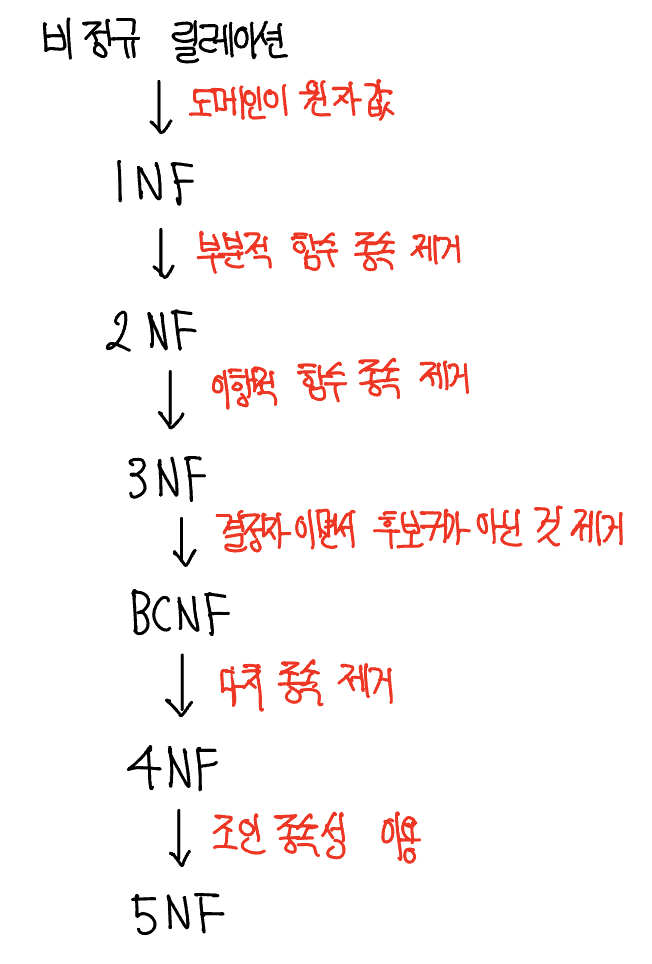 비정규 릴레이션
↓ 도메인이 원자값
1NF
↓ 부분적 함수 종속 제거
2NF
↓ 이행적 함수 종속 제거
3NF
↓ 결정자이면서 후보키가 아닌 것 제거
BCNF
↓ 다치 종속 제거
4NF
↓ 조인 종속성 이용
5NF